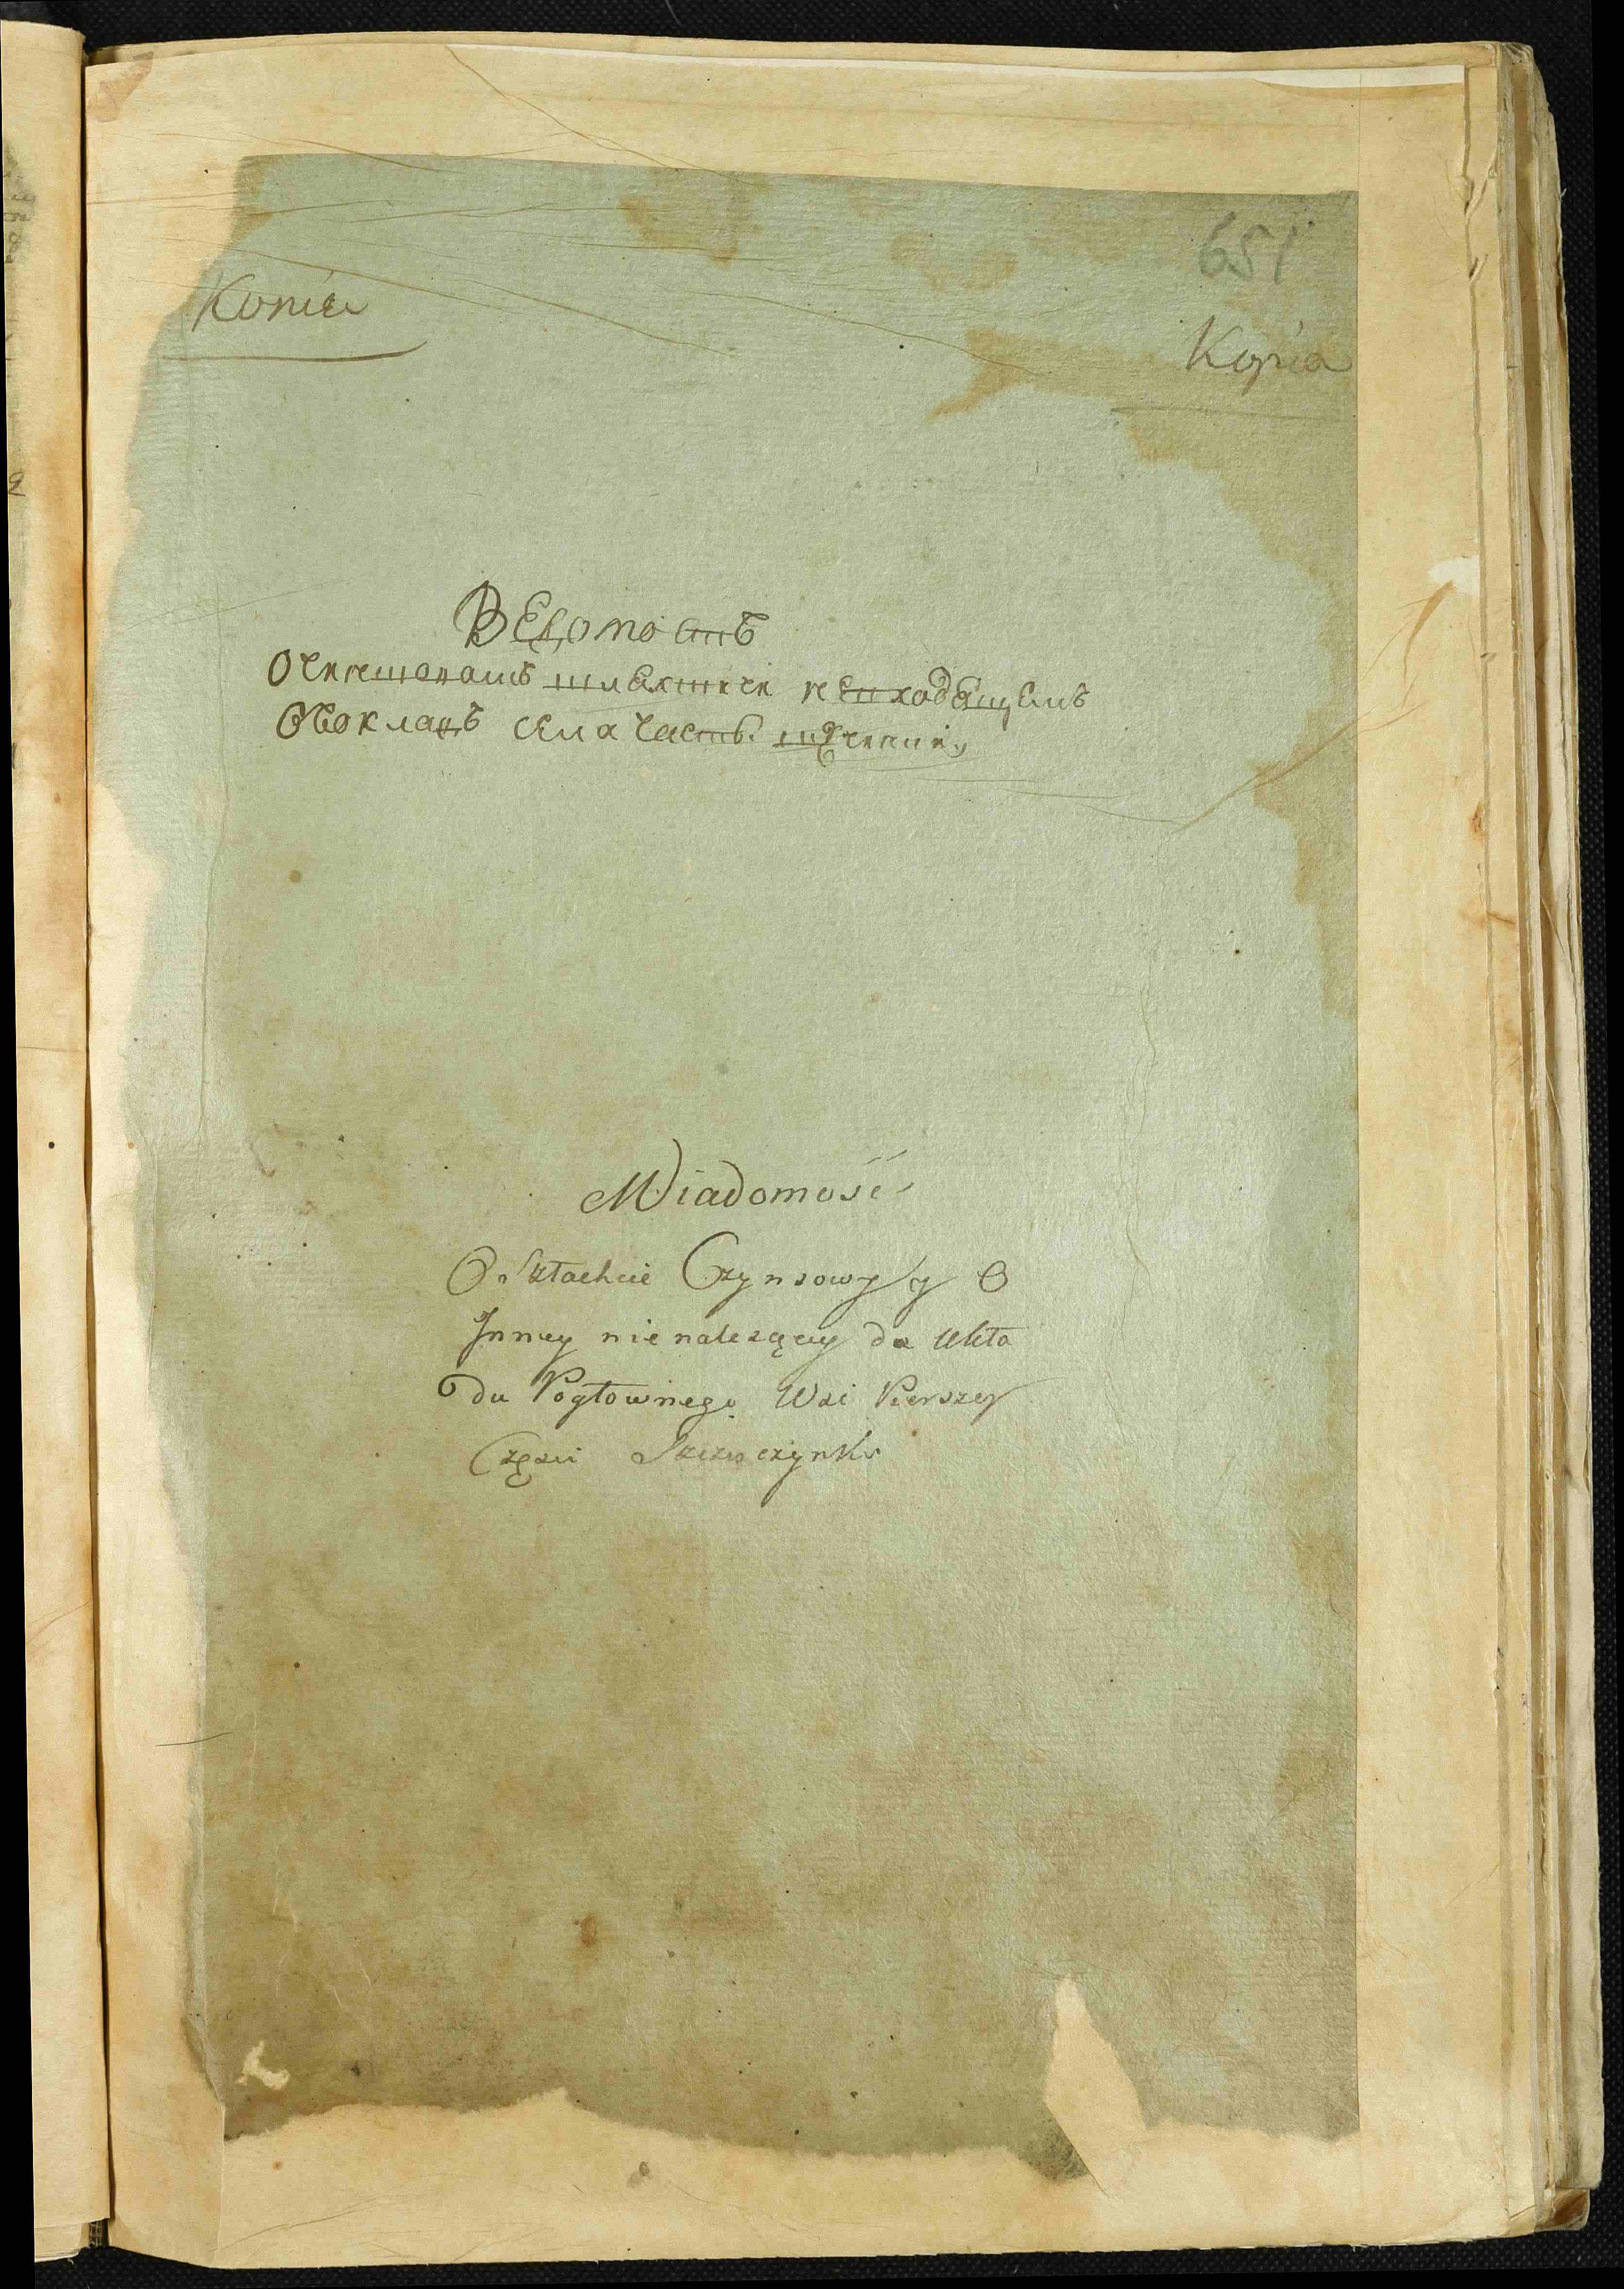 651
Копия
Kopia
Ведомость
О чиншовамъ шляхтичи невходящемъ
Вокладъ села часть
Wiadomość
O Szlachcie Czynsowy y O
Inney nie należący do Ukła
du Pogłownego Wsi Pierszey
Części